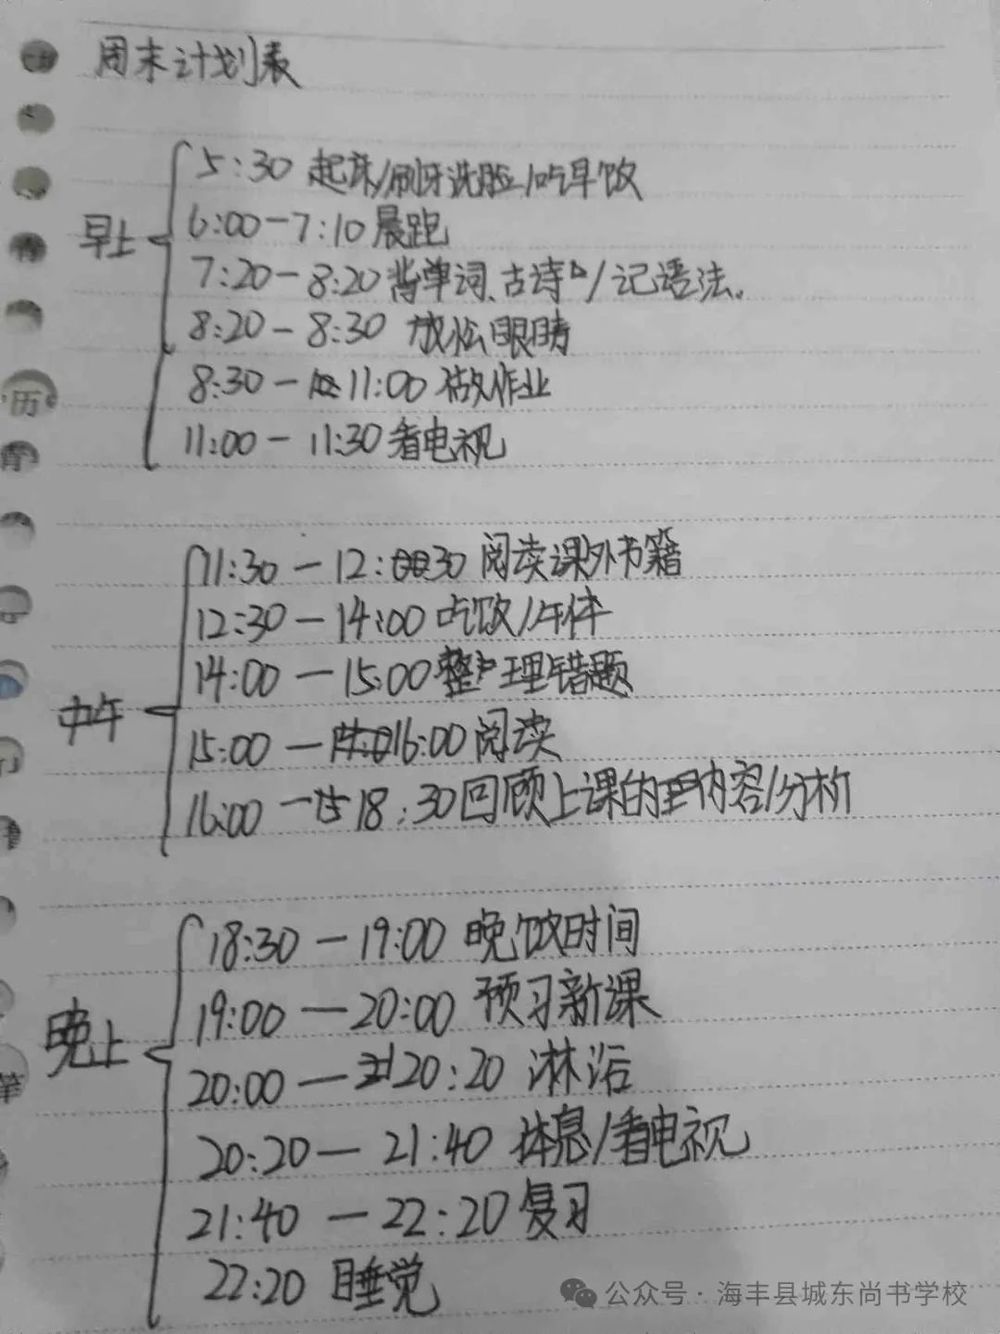 周末计划表
5:30 起床/刷牙洗脸/吃早饭
早上
6:00-7:10 晨跑
7:20-8:20 背单词、古诗/记语法.
8:20-8:30 放松眼睛
8:30-11:00 做作业
11:00-11:30 看电视
11:30-12:30 阅读课外书籍
12:30-14:00 吃饭/午休
14:00-15:00 整理错题
中午
15:00-16:00 阅读
16:00-18:30 回顾上课的内容/分析
18:30-19:00 晚饭时间
19:00-20:00 预习新课
晚上
20:00-20:20 淋浴
20:20-21:40 休息/看电视
21:40-22:20 复习
22:20 睡觉
公众号·海丰县城东尚书学校
历
笔